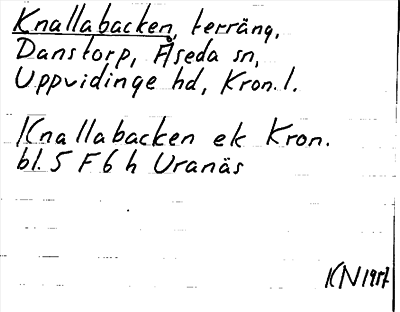 Knallabacken, terräng,
Danstorp, Åseda sn,
Uppvidinge hd, Kron. l.
Knallabacken ek Kron.
bl. 5 F 6 h Uranäs
KN 1957